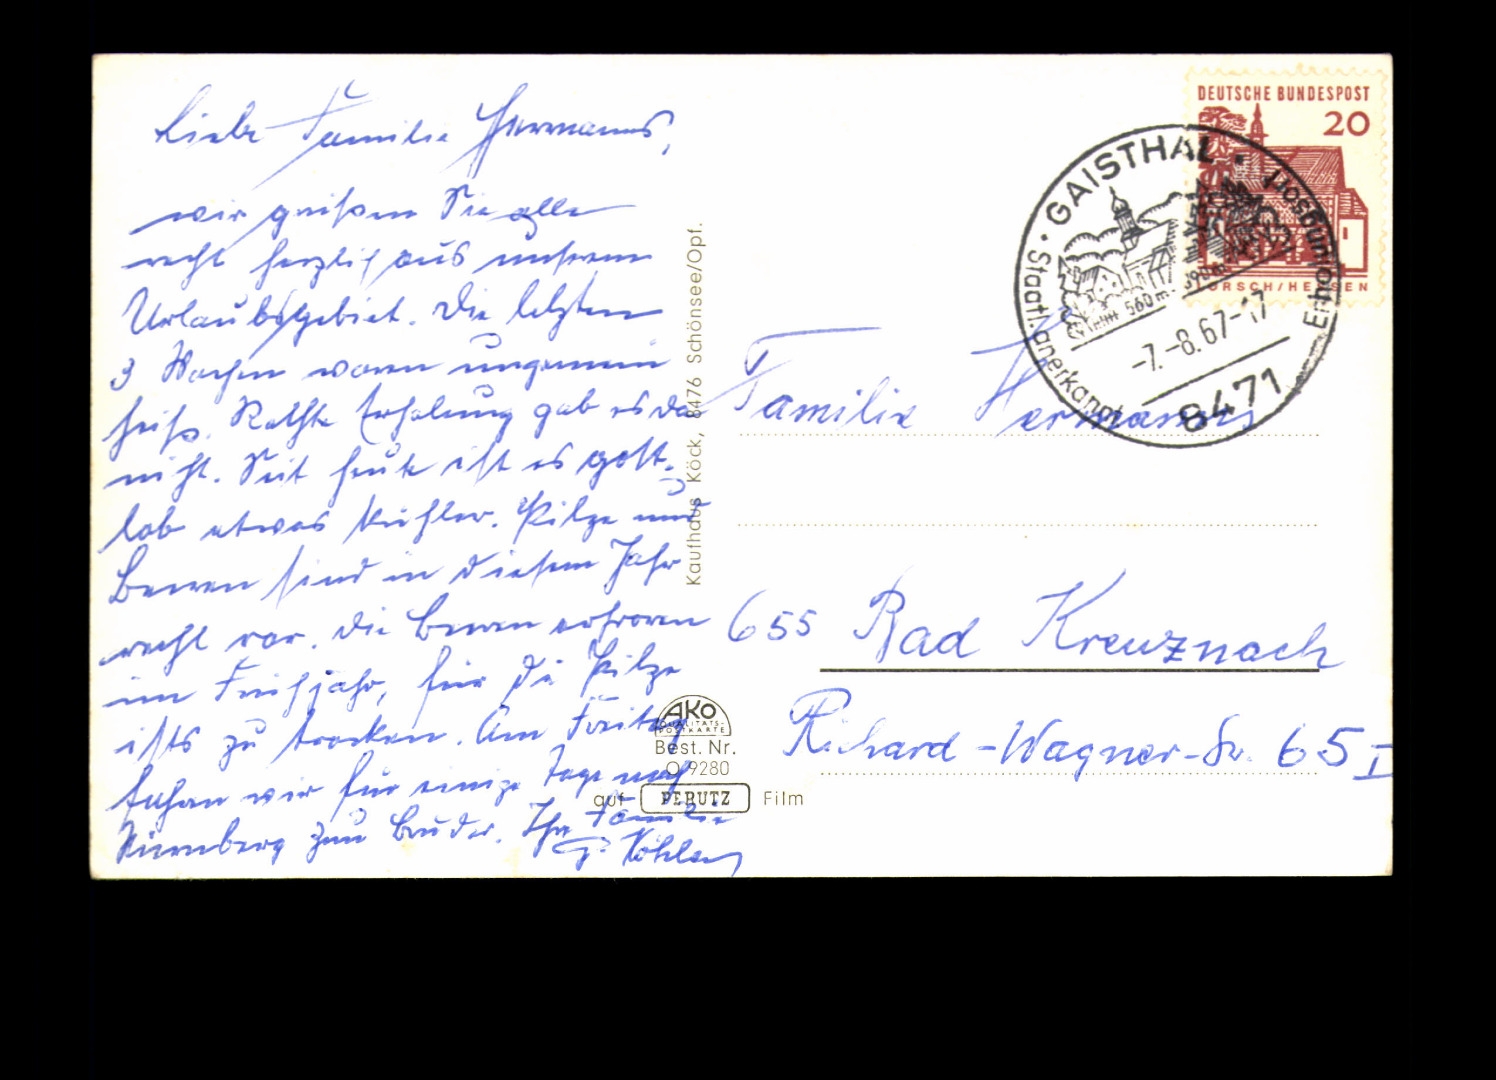 Liebe Familie Hermanns,
wir grüßen Sie alle
recht herzlich aus unserem
Urlaubsgebiet. Die letzten
3 Wochen waren ungemein
heiß. Rechte Erholung gab es da
nicht. Seit heute ist es gott-
lob etwas kühler. Pilze und
Beeren sind in diesem Jahr
recht rar. Die Beeren erfroren
im Frühjahr, für die Pilze
ists zu trocken. Am Freitag
fahren wir für einige Tage nach
Nürnberg zum Bruder. Ihr Familie
Köhler
Kaufhaus Köck, 8476 Schönsee/Opf.
AKO
QUALITÄTS-
POSTKARTE
Best. Nr.
O 9280
auf PERUTZ Film
DEUTSCHE BUNDESPOST
20
LORSCH/HESSEN
GAISTHAL
Staatl. anerkannt Erholungsort
560 m
-7.-8.67-17
8471
Familie Hermanns
655 Bad Kreuznach
Richard-Wagner-Str. 65 I